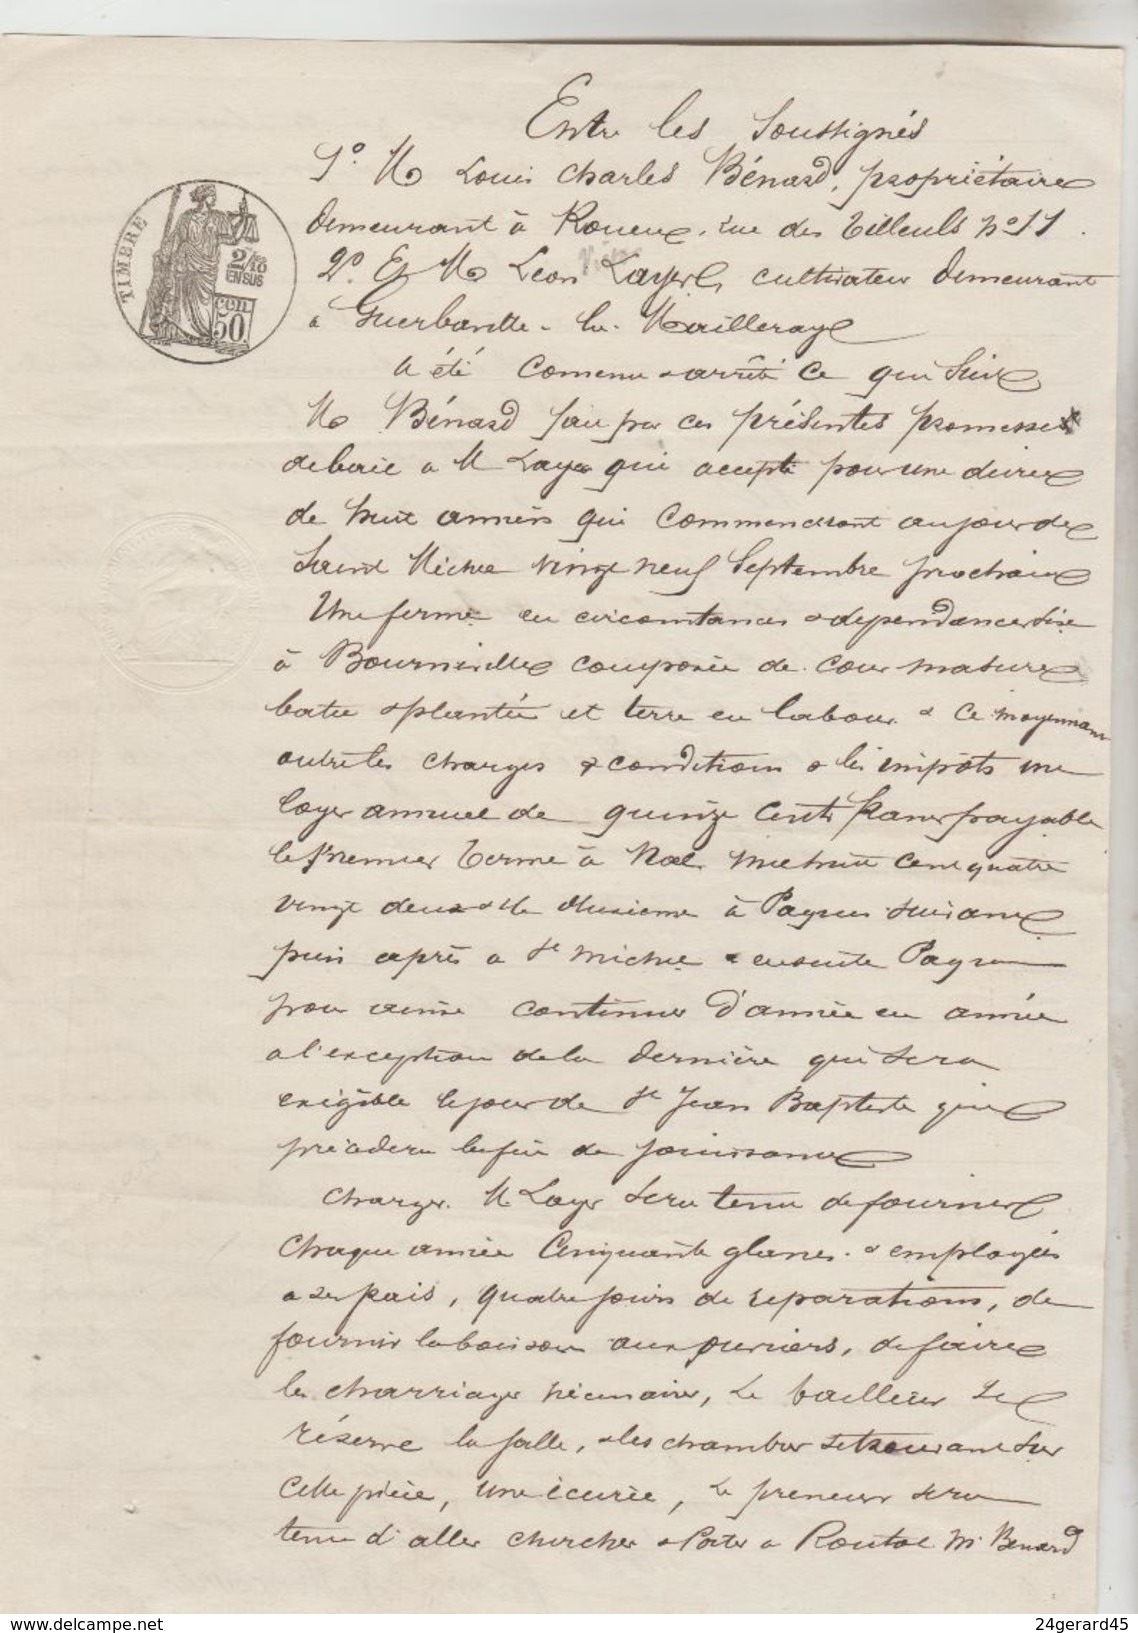 Entre les Soussignés
1º. M Louis Charles Bénard, propriétaire
demeurant à Rouen, rue des Tilleuls nº 11.
2º. Et M Léon Layer, cultivateur demeurant
à Guerbaville-la-Mailleraye
a été convenu & arrêté ce qui suit
M Bénard fait par ces présentes promesse
de bail à M Layer qui accepte pour une durée
de huit années qui commenceront au jour de
Saint Michel vingt neuf Septembre prochain
Une ferme en circonstances & dépendances sise
à Bourneville composée de cour masure
batie & plantée et terre en labour & ce moyennant
outre les charges & conditions & les impôts un
loyer annuel de quinze cents francs payable
le premier terme à Noel mil huit cent quatre
vingt deux & le deuxième à Pâques suivant
puis après à St Michel & ensuite Pâques
pour ainsi continuer d'année en année
à l'exception de la dernière qui sera
exigible le jour de St Jean Baptiste qui
précèdera la fin de jouissance
Charges. M Layer sera tenu de fournir
chaque année Cinquante glanes & employées
à ses frais, quatre jours de réparations, de
fournir la boisson aux ouvriers, de faire
les charriages nécessaires, Le bailleur se
réserve la salle, & les chambres se trouvant sur
cette pièce, une écurie, Le preneur sera
tenu d'aller chercher & Porter à Routot Mr Bénard
TIMBRE
2/10
EN SUS
50
24gerard45
delcampe.net